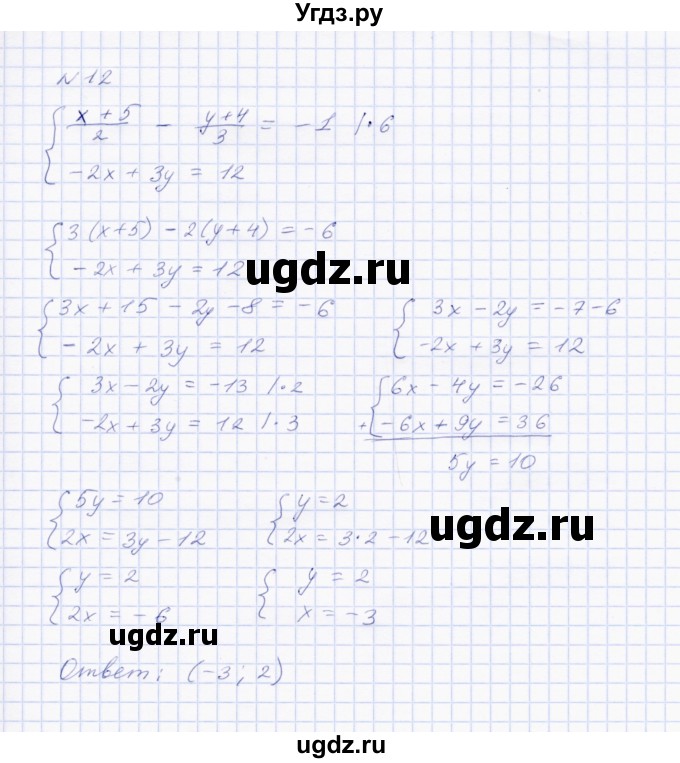 Угдз.ру
№12
{ (x+5)/2 - (y+4)/3 = -1 /·6
-2x + 3y = 12
{ 3(x+5) - 2(y+4) = -6
-2x + 3y = 12
ugdz.ru
{ 3x + 15 - 2y - 8 = -6 { 3x - 2y = -7-6
-2x + 3y = 12 -2x + 3y = 12
{ 3x - 2y = -13 /·2 { 6x - 4y = -26
-2x + 3y = 12 /·3 + -6x + 9y = 36
5y = 10
{ 5y = 10 { y = 2
2x = 3y - 12 2x = 3·2 - 12
ugdz.ru
{ y = 2 { y = 2
2x = -6 x = -3
ugdz.ru
Ответ: (-3; 2)
ugdz.ru